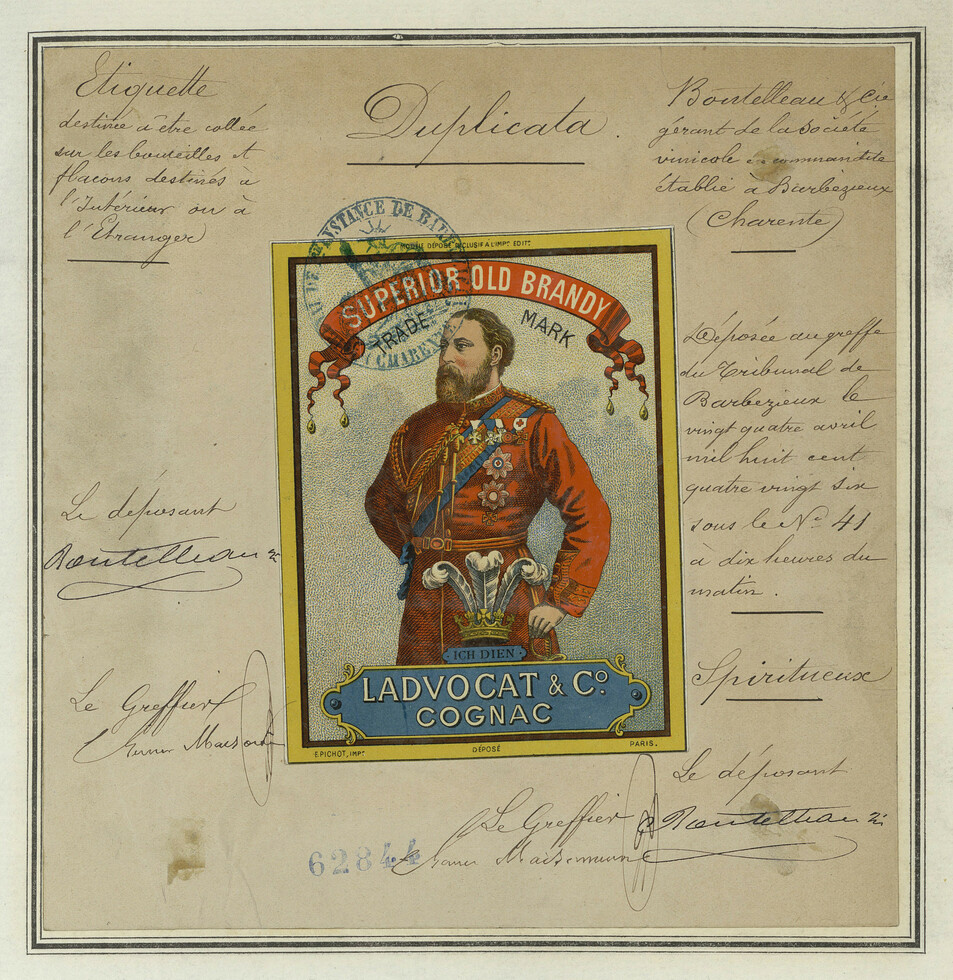 Etiquette
destinée à être collée
sur les bouteilles et
flacons destinés à
l'Intérieur ou à
l'Etranger
Duplicata.
Boutelleau & Cie
gérant de la Société
vinicole en commandite
établie à Barbezieux
(Charente)
MODÈLE DÉPOSÉ EXCLUSIF A L'IMPT EDITR
SUPERIOR OLD BRANDY
TRADE MARK
ICH DIEN
LADVOCAT & Co.
COGNAC
E.PICHOT, IMPT
DÉPOSÉ
PARIS.
INSTANCE DE
(CHARENTE)
Déposée au greffe
du Tribunal de
Barbezieux le
vingt quatre avril
mil huit cent
quatre vingt six
sous le No 41
à dix heures du
matin.
Spiritueux
Le déposant
Boutelleau
Le Greffier
Le déposant
Boutelleau
Le Greffier
62844